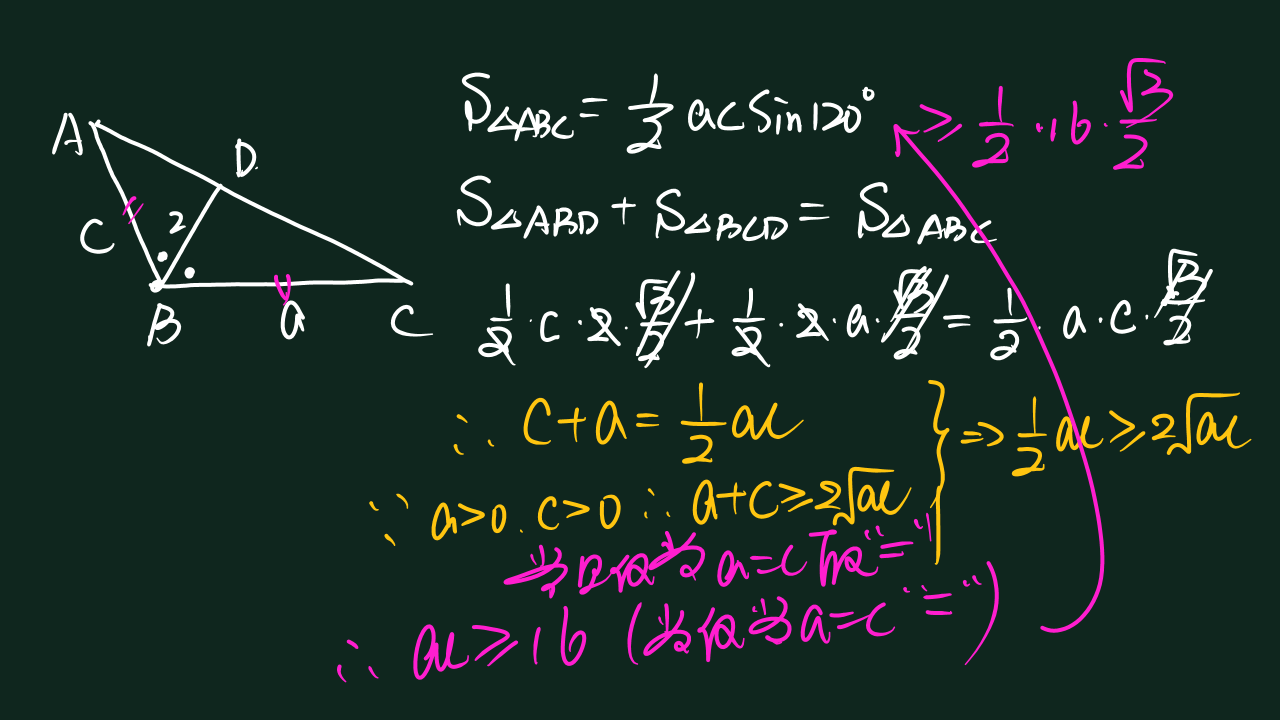 A
D
C
2
B
a
C
S△ABC = 1/2 ac sin120° ≥ 1/2 · 16 · √3/2
S△ABD + S△BCD = S△ABC
1/2 · c · 2 · √3/2 + 1/2 · 2 · a · √3/2 = 1/2 · a · c · √3/2
∴ c+a = 1/2 ac
∵ a>0. c>0 ∴ a+c ≥ 2√ac } ⇒ 1/2 ac ≥ 2√ac
当且仅当 a=c 取"="
∴ ac ≥ 16 (当仅当 a=c "=")